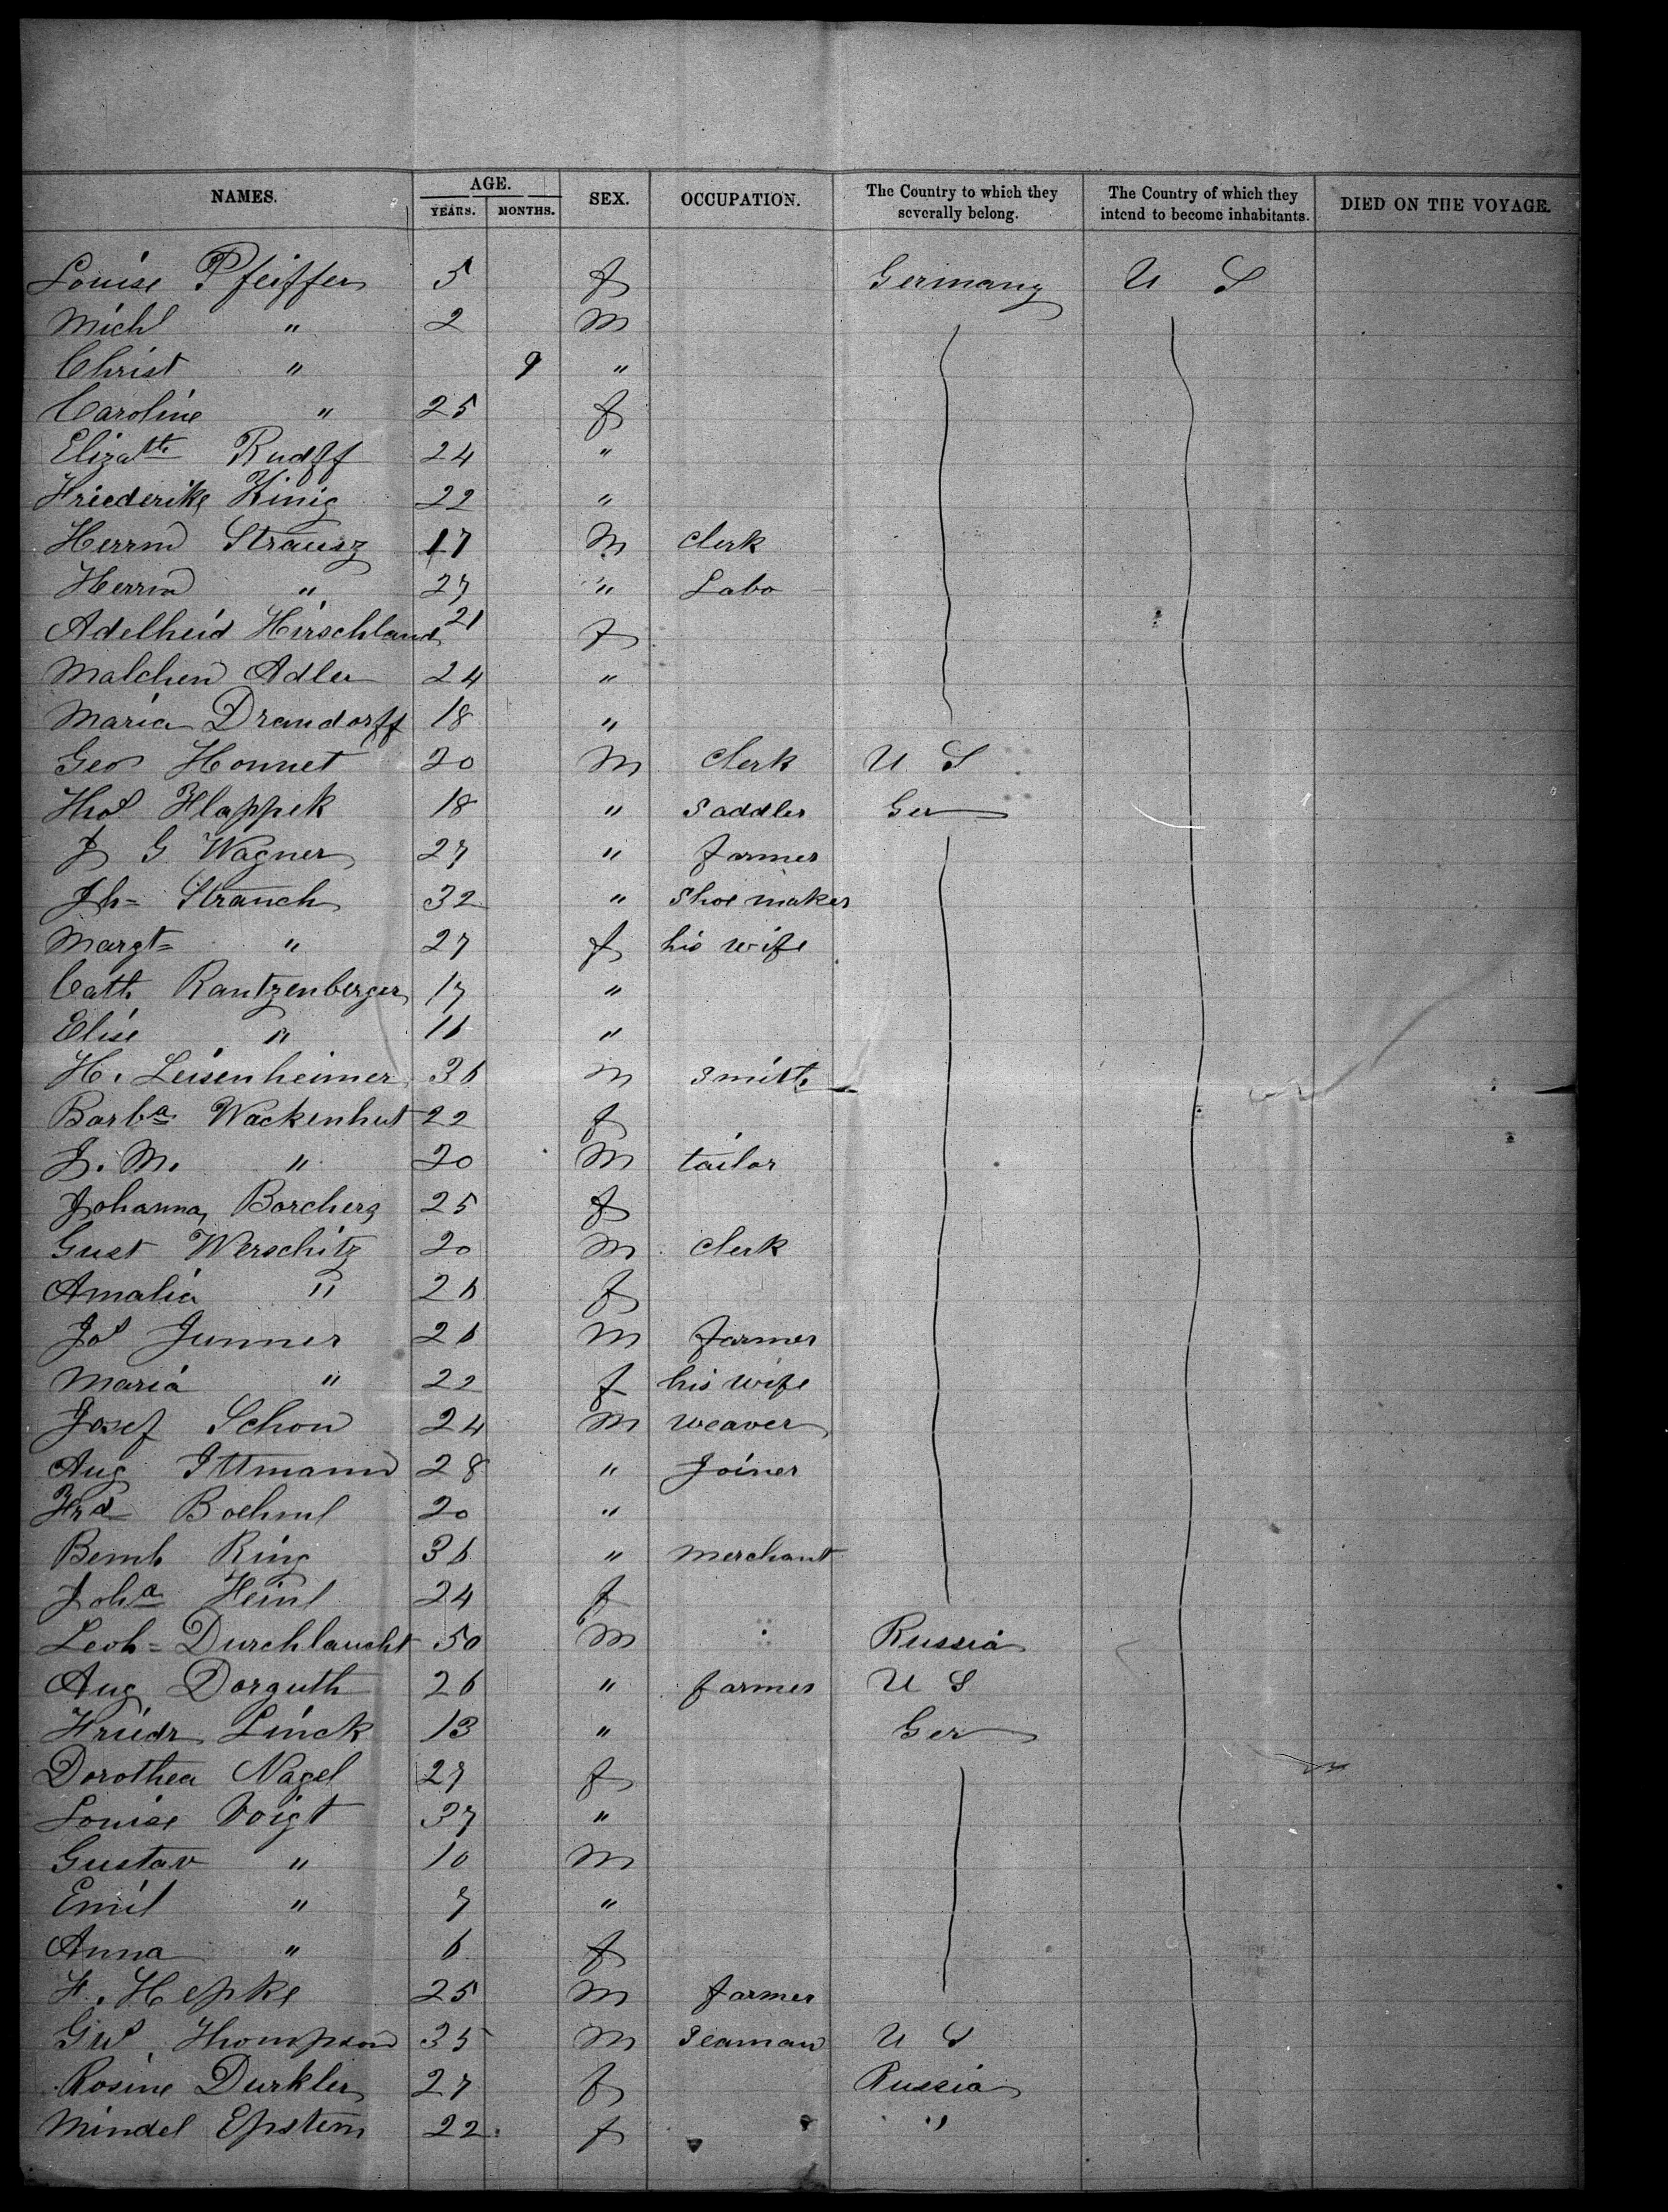 NAMES. AGE. SEX. OCCUPATION. The Country to which they severally belong. The Country of which they intend to become inhabitants. DIED ON THE VOYAGE.
YEARS. MONTHS.
Louise Pfeiffer 5 f Germany U S
Michl " 2 m
Christ " 9 "
Caroline " 25 f
Elizath Rudff 24 "
Friederike Kinig 22 "
Herrm Strausz 17 m clerk
Herrm " 27 " Labo
Adelheid Hirschland 21 f
Malchen Adler 24 "
Maria Drandorff 18 "
Geo Honnet 20 m Clerk U S
Ths Flappek 18 " Saddler Ger
J G Wagner 27 " farmer
Jh= Strauch 32 " Shoe maker
Margt= " 27 f his wife
Cath Rantzenberger 17 "
Elise " 16 "
H. Leisenheimer 36 m Smith
Barba Wackenhut 22 f
J. M. " 20 m tailor
Johanna Borchers 25 f
Gust Werschitz 20 m Clerk
Amalia " 26 f
Jos Junner 26 m farmer
Maria " 22 f his wife
Josef Schon 24 m weaver
Aug Ittmann 28 " Joiner
Frd Boehml 20 "
Bernh Ring 36 " merchant
Joha Heinl 24 f
Leoh= Durchlaucht 50 m Russia
Aug Dorguth 26 " farmer U S
Friedr Linck 13 " Ger
Dorothea Nagel 27 f
Louise Voigt 37 "
Gustav " 10 m
Emil " 7 "
Anna " 6 f
F. Hepke 25 m farmer
Gus Thompson 35 m Seaman U S
Rosine Durkler 27 f Russia
Mindel Epstein 22 f "